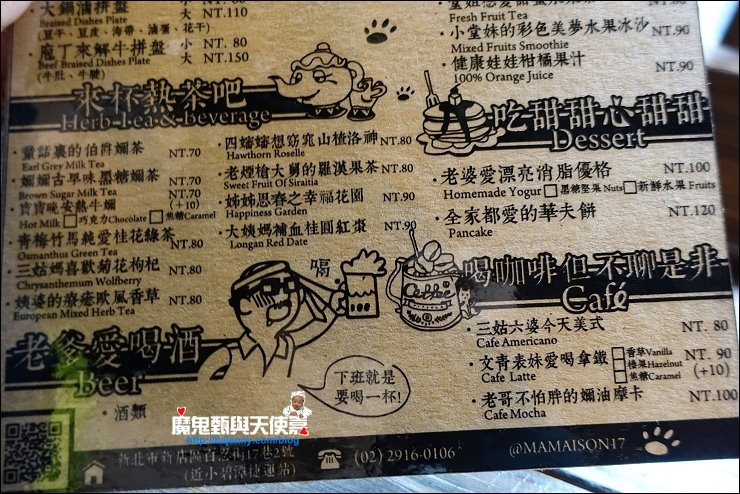 大鍋滷拼盤 小
大 NT.110
Braised Dishes Plate
(豆干、豆皮、海帶、滷蛋、花干)
庖丁來解牛拼盤 小 NT. 80
大 NT.150
Beef Braised Dishes Plate
(牛肚、牛腱)
Fresh Fruit Tea
小堂妹的彩色美夢水果冰沙 NT.90
Mixed Fruits Smoothie
健康娃娃柑橘果汁 NT.90
100% Orange Juice
來杯熱茶吧
Herb Tea & beverage
童話裏的伯爵嬭茶 NT.70
Earl Grey Milk Tea
嬭嬭古早味黑糖嬭茶 NT.70
Brown Sugar Milk Tea
寶寶晚安熱牛嬭 NT.70
Hot Milk □巧克力Chocolate □焦糖Caramel (+10)
青梅竹馬純愛桂花綠茶 NT.80
Osmanthus Green Tea
三姑媽喜歡菊花枸杞 NT.80
Chrysanthemum Wolfberry
姨婆的療癒歐風香草 NT.80
European Mixed Herb Tea
四嬸嬸想窈窕山楂洛神 NT.80
Hawthorn Roselle
老煙槍大舅的羅漢果茶 NT.80
Sweet Fruit Of Siraitia
姊姊思春之幸福花園 NT.90
Happiness Garden
大姨媽補血桂圓紅棗 NT.90
Longan Red Date
吃甜甜心甜甜
Dessert
老婆愛漂亮消脂優格 NT.100
Homemade Yogur □黑糖堅果 Nuts □新鮮水果 Fruits
全家都愛的華夫餅 NT.120
Pancake
喝咖啡但不聊是非
Café
三姑六婆今天美式 NT. 80
Cafe Americano
文青表妹愛喝拿鐵 NT. 90
Cafe Latte
□香草Vanilla
□榛果Hazelnut
□焦糖Caramel
(+10)
老哥不怕胖的嬭油摩卡 NT.100
Cafe Mocha
喝
Coffee
老爹愛喝酒
Beer
酒類
下班就是
要喝一杯!
魔鬼甄與天使嘉
新北市新店區百忍街17巷2號
(近小碧潭捷運站)
(02) 2916-0106
@MAMAISON17